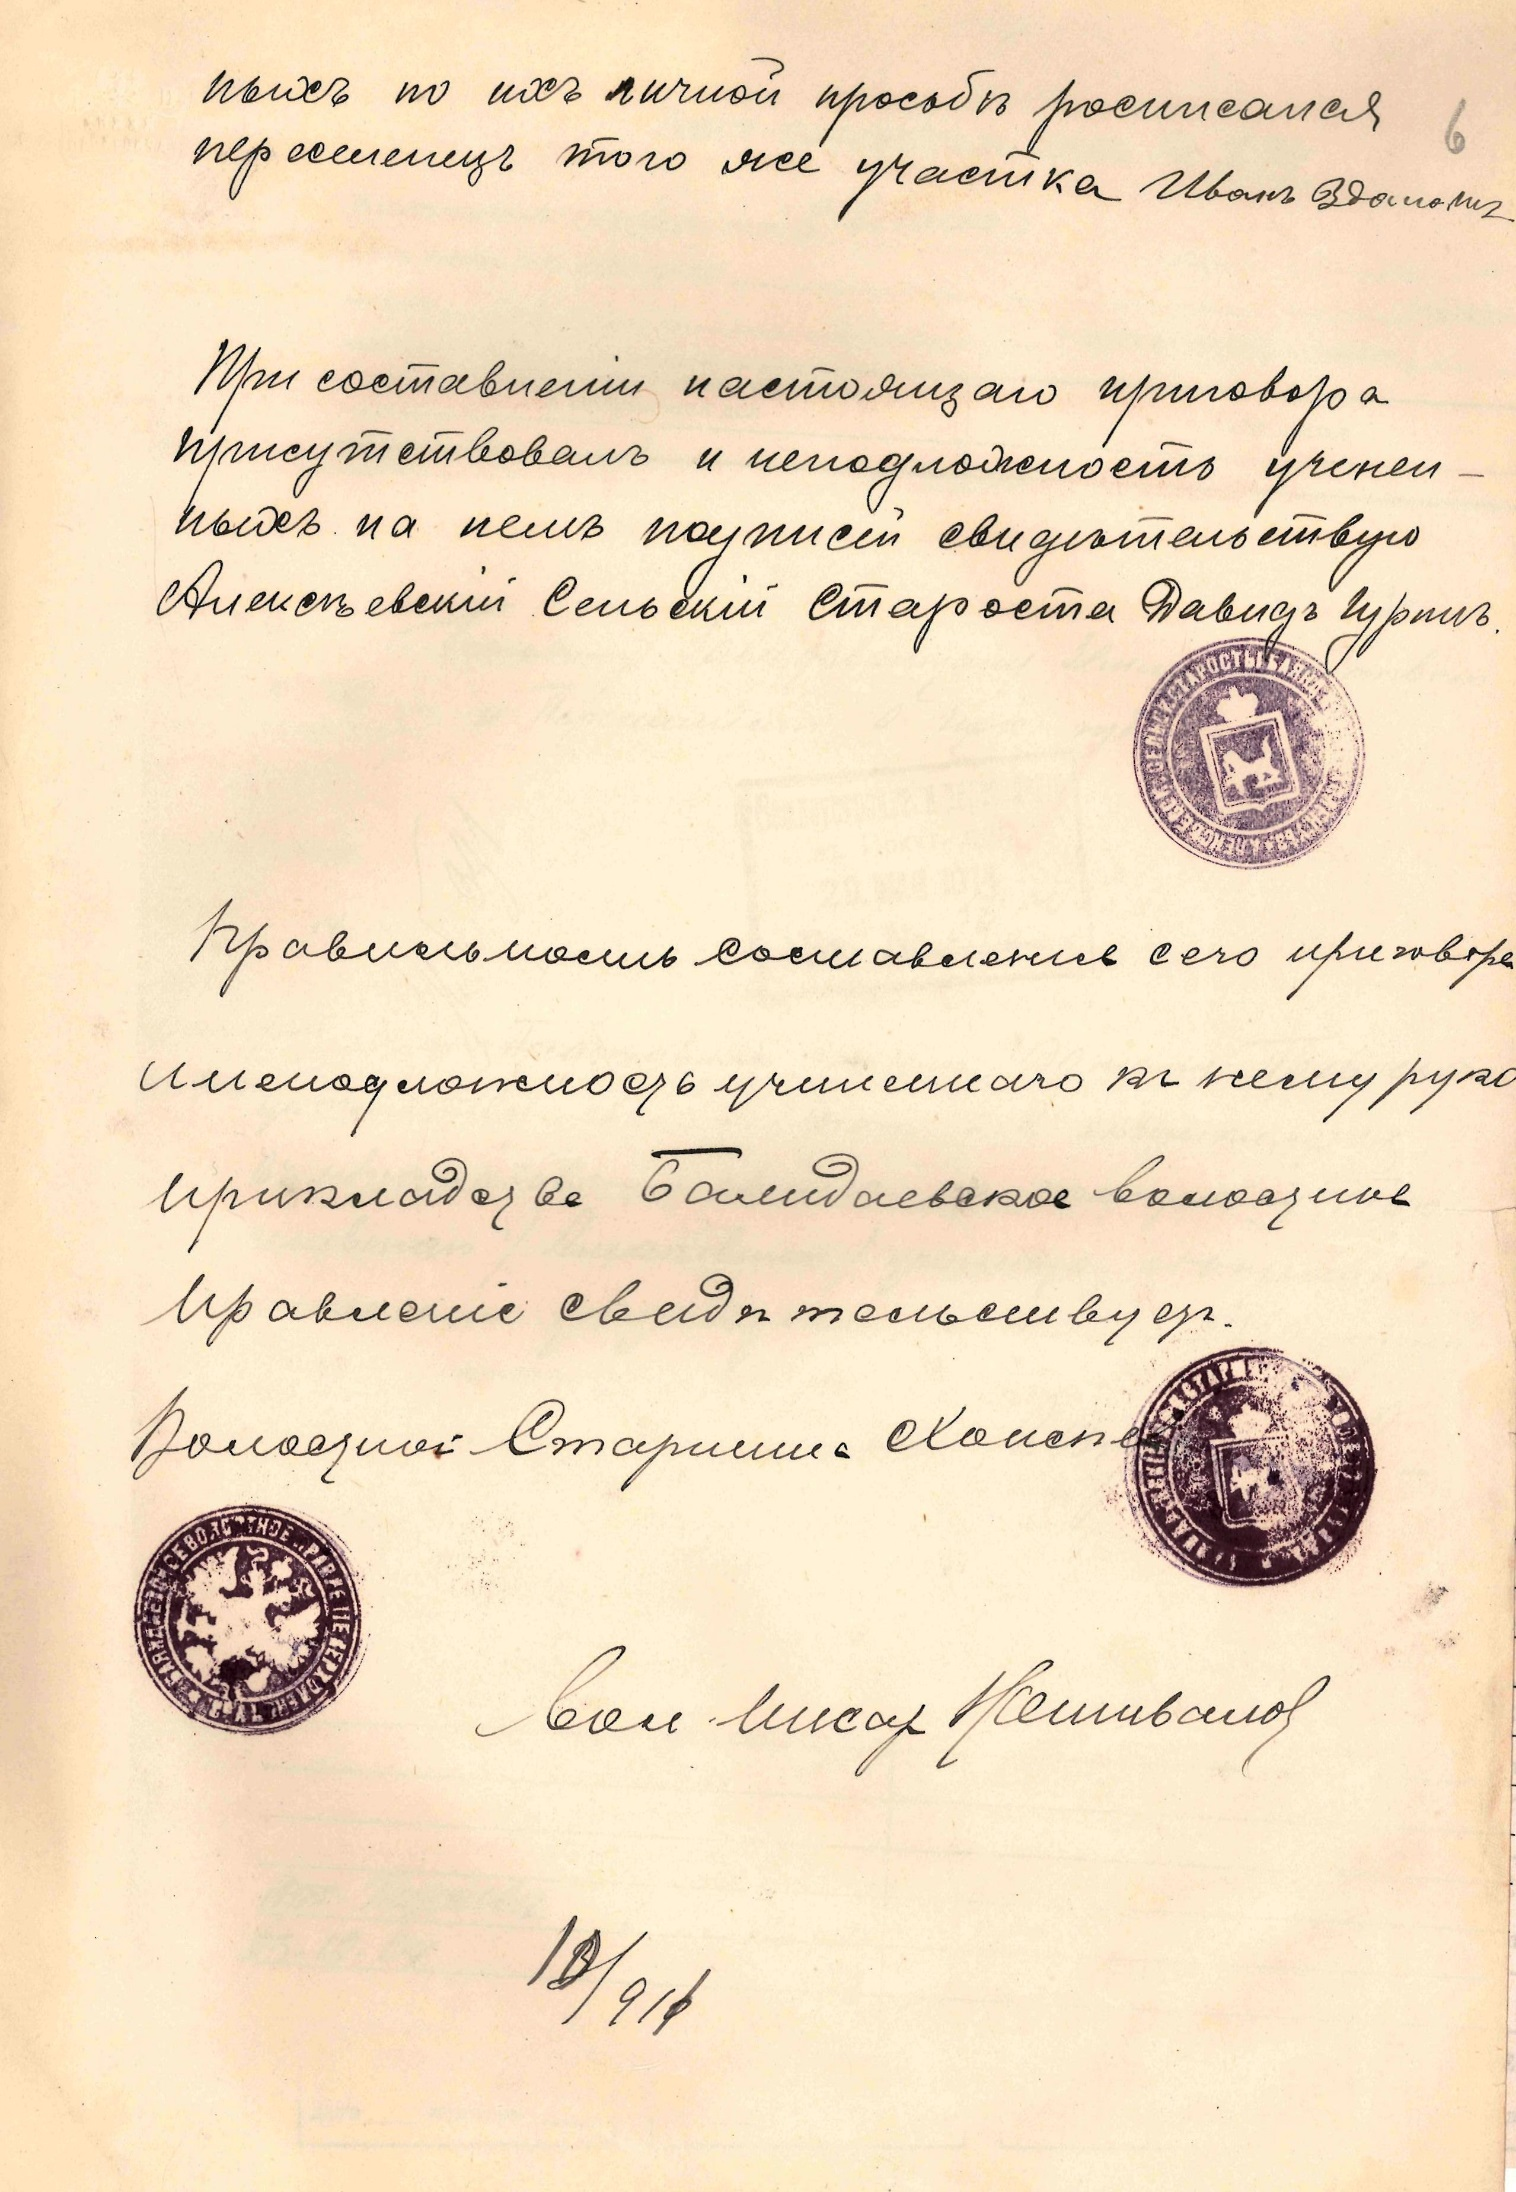 ныхъ по ихъ личной просьбѣ росписался
6
переселенецъ того же участка Иванъ
При составленіи настоящаго приговора
присутствовалъ и неподложность учинен-
ныхъ на немъ подписей свидѣтельствую
Алексѣевскій Сельскій Староста Давидъ
Правильность составления сего приговора
и неподложность учиненнаго къ нему руко
прикладства волостное
правленіе свидѣтельствуетъ.
Волостной Старшина
Вол Писарь